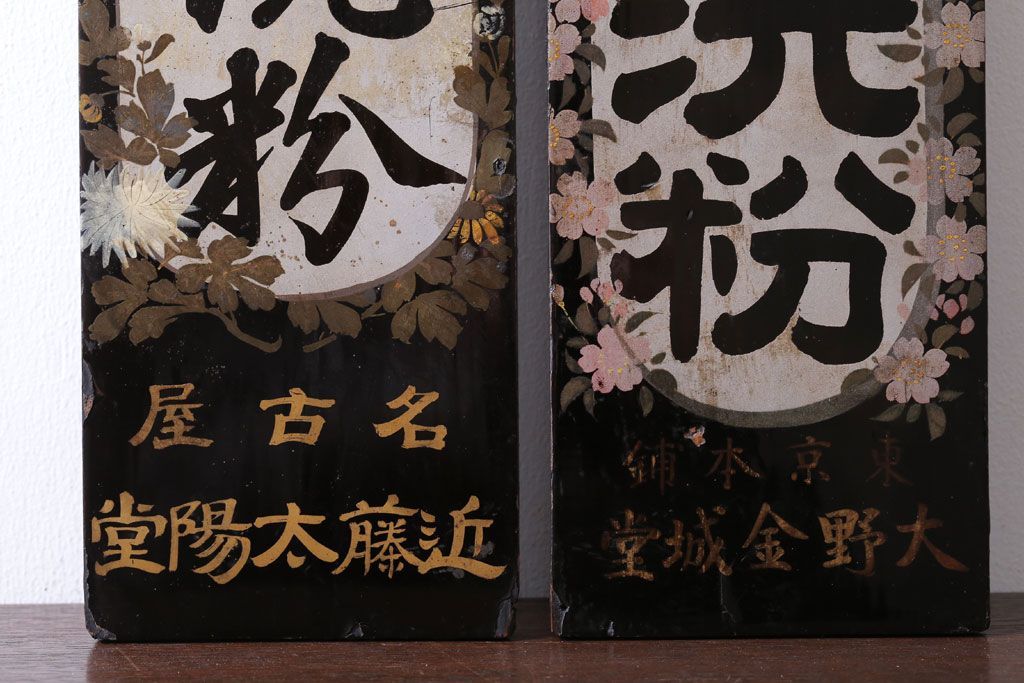 粉
名古屋
近藤太陽堂
洗粉
東京本鋪
大野金城堂